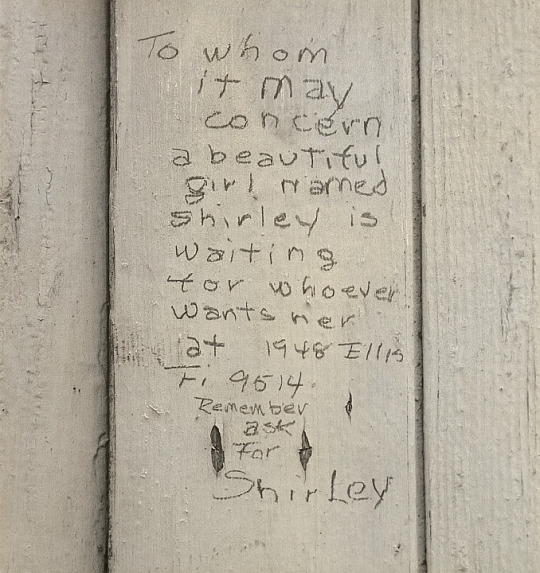 To whom
it may
concern
a beautiful
girl named
shirley is
waiting
for whoever
wants her
at 1948 Ellis
Fi 9514.
Remember
ask
For
Shirley